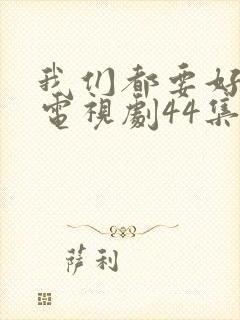 我们都要好
電視劇44集
萨利